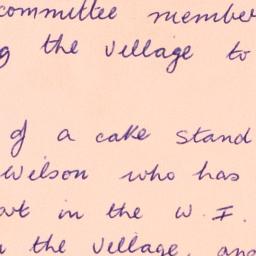 committee member
the village to
of a cake stand
Wilson who has
in the W.I.
the village, and